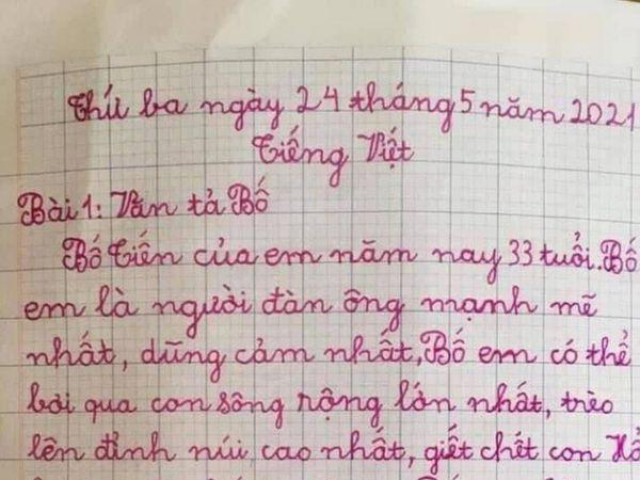 Thứ ba ngày 24 tháng 5 năm 2021
Tiếng Việt
Bài 1: Văn tả Bố
Bố Tiến của em năm nay 33 tuổi. Bố
em là người đàn ông mạnh mẽ
nhất, dũng cảm nhất, Bố em có thể
bơi qua con sông rộng lớn nhất, trèo
lên đỉnh núi cao nhất, giết chết con Hổ